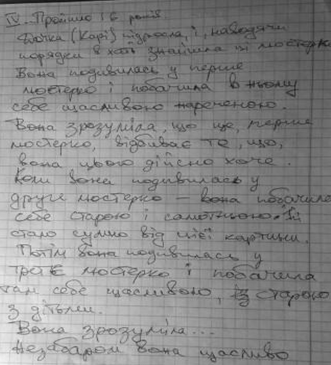 IV. Пройшло 16 років
Дівка (Карі) підросла, і, наводячи
порядки в хаті знайшла ті люстерка
Вона подивилась у перше
люстерко і побачила в ньому
себе щасливою нареченою.
Вона зрозуміла, що це, перше
люстерко, відбиває те, що,
вона цього дійсно хоче.
Коли вона подивилась у
друге люстерко – вона побачила
себе старою і самотньою. Їй
стало сумно від цієї картини.
Потім вона подивилась у
третє люстерко і побачила
там себе щасливою, із старою
з дітьми.
Вона зрозуміла...
Незабаром вона щасливо